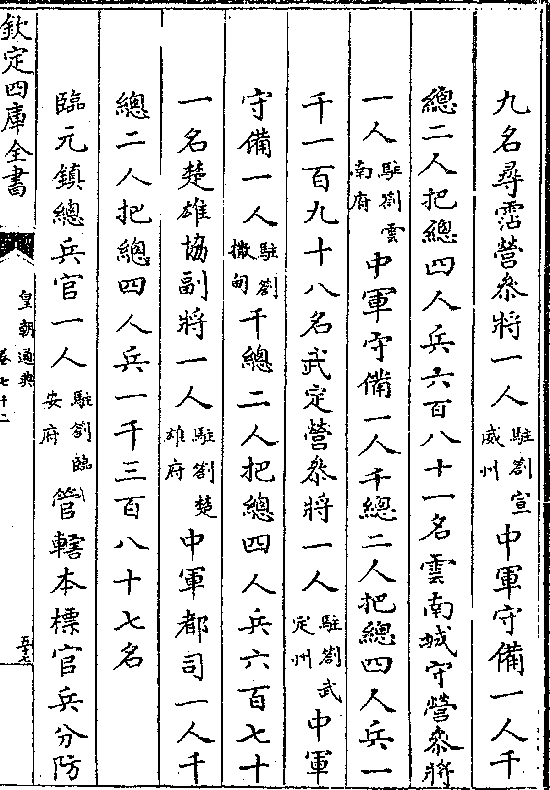 九名尋霑營叅將一人駐劄宣威州中軍守備一人千
總二人把總四人兵六百八十一名雲南城守營叅將
一人駐劄雲南府中軍守備一人千總二人把總四人兵一
千一百九十八名武定營叅將一人駐劄武定州中軍
守備一人駐劄撒甸千總二人把總四人兵六百七十
一名楚雄協副將一人駐劄楚雄府中軍都司一人千
總二人把總四人兵一千三百八十七名
臨元鎮總兵官一人駐劄臨安府管轄本標官兵分防
欽定四庫全書
皇朝通典
卷七十二